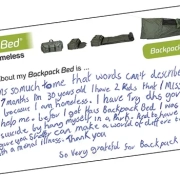 Bed®
meless
Backpack
bout my Backpack Bed is ...
ns so much to me that words can't describe
7 months I'm 30 years old I have 2 kids that I Miss
because I am homeless. I have Try this gov
help me. Before I got this Backpack Bed I was
suicide by hang myself in a Park. And to have
you Sincerly can make a world of difference to
with a mental illness. Thank you
So very grateful for Backpack